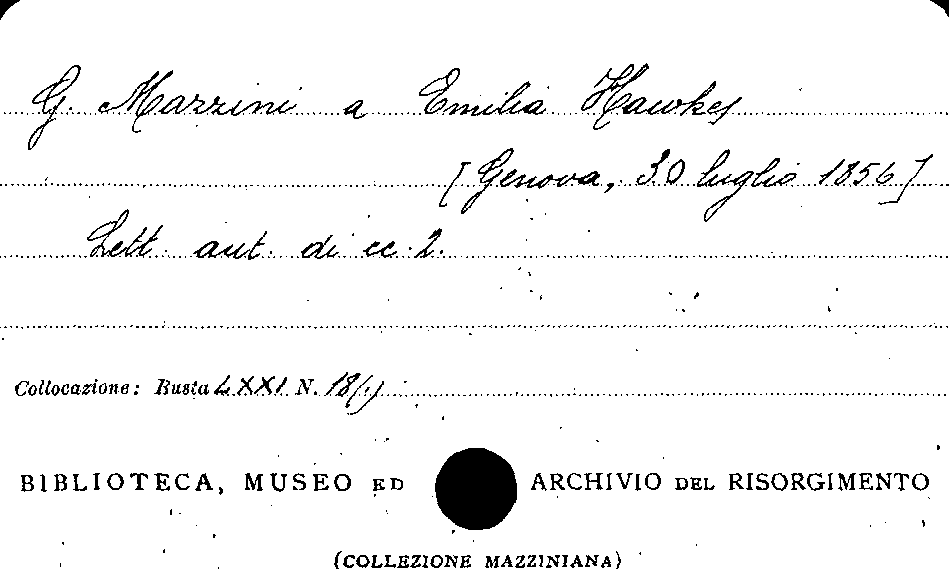 G. Mazzini a Emilia Hawkes
[Genova, 30 luglio 1856]
Lett. aut. di cc. 2.
Collocazione: Busta LXXI N. 18(1)
BIBLIOTECA, MUSEO ED ARCHIVIO DEL RISORGIMENTO
(COLLEZIONE MAZZINIANA)